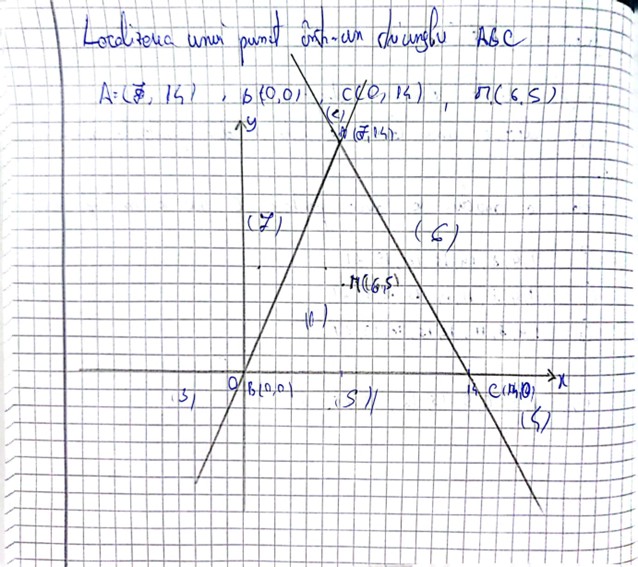 Localizarea unui punct într-un triunghi ABC
A=(7, 14) , B(0,0) , C(0, 14) , M(6,5)
y
(2)
A(7,14)
(7)
(6)
M(6,5)
(1)
O B(0,0)
14 C(14,0)
x
(3)
(5)
(4)